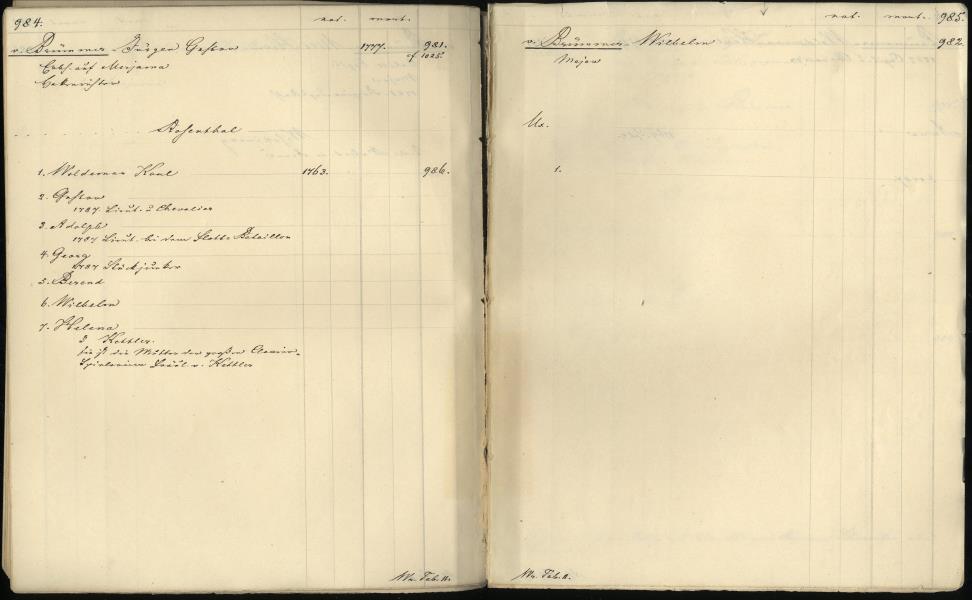 984.
nat. mort.
v. Brümmer Jürgen Gustav 1777. 981.
cf 1025.
Erbh. auf Merjama
Hakenrichter
Rosenthal
1. Woldemar Karl 1763. 986.
2. Gustav
1787 Lieut. u Chevalier
3. Adolph
1787 Lieut. bei dem Bataillon
4. Georg
1787 Stückjunker
5. Berend
6. Wilhelm
7. Helena
Kettler.
sie ist die Mutter der großen Clavier-
Spielerin v. Kettler
Tab. II.
nat. mort. 985.
v. Brümmer Wilhelm 982.
Major
Ux.
1.
Tab. II.